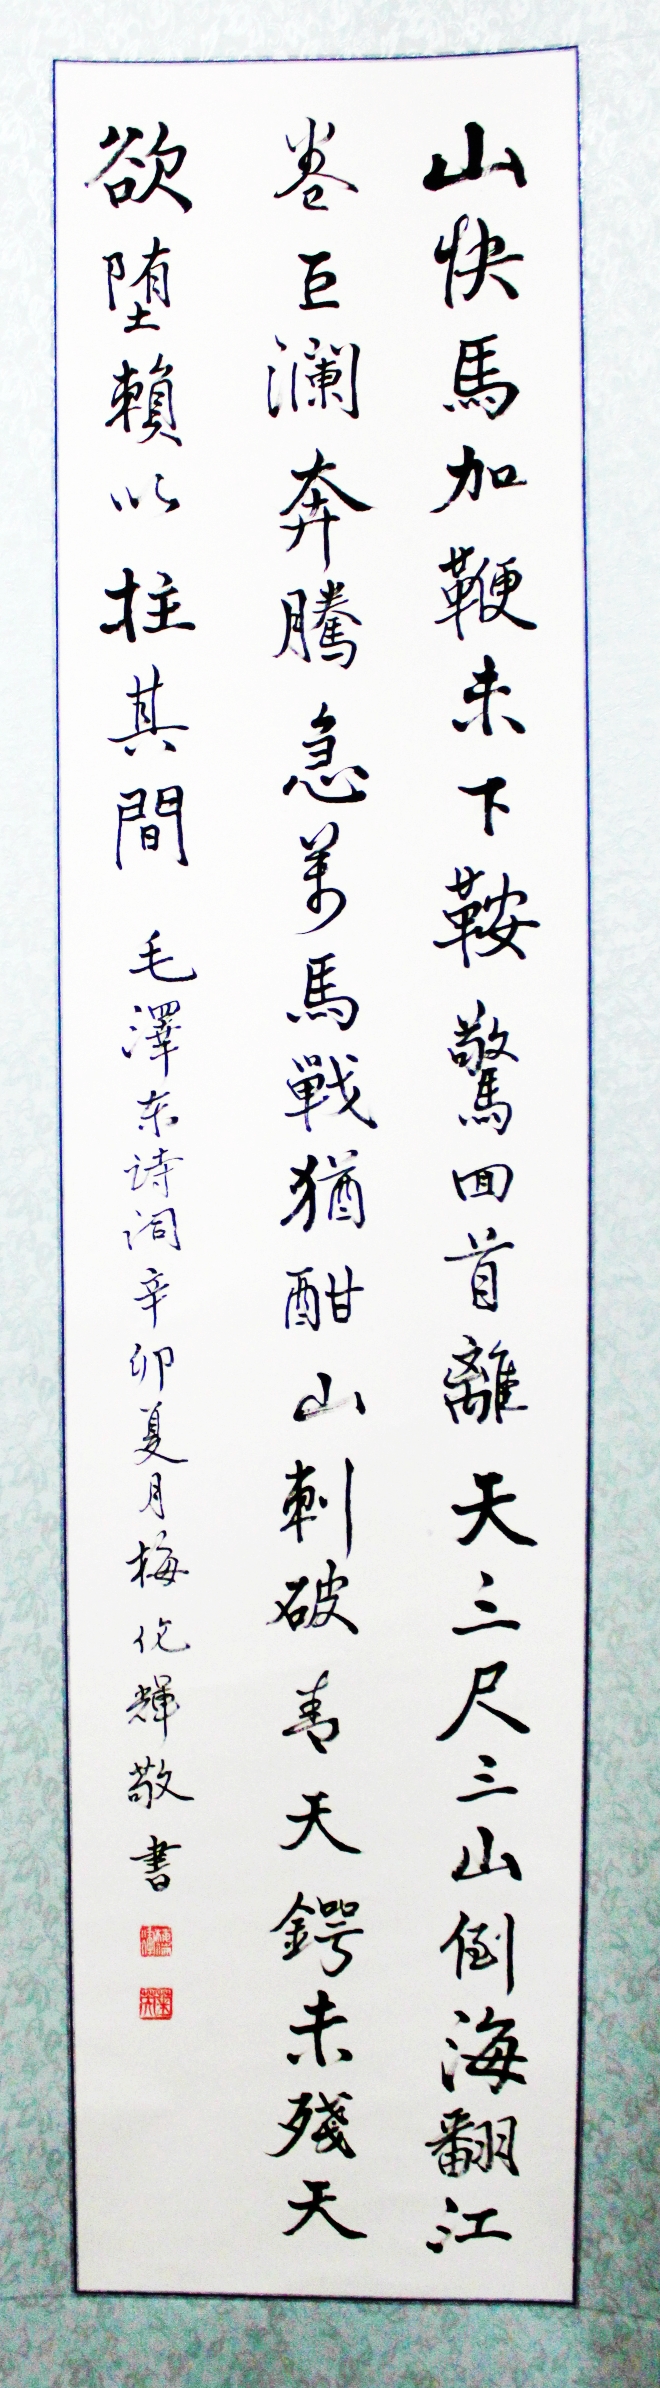 山快馬加鞭未下鞍驚回首離天三尺三山倒海翻江
卷巨瀾奔騰急萬馬戰猶酣山刺破青天鍔未殘天
欲堕賴以拄其間
毛澤东诗词辛卯夏月梅佗輝敬書